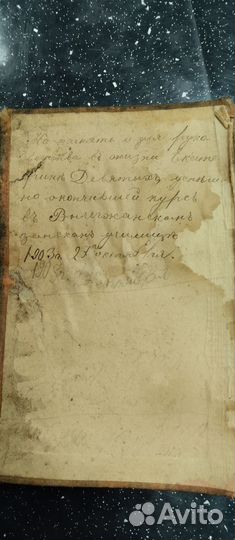 На память и для руко
водства в жизни Екате
рине Девятых, успеш
но окончившей курсъ
въ
земскомъ училищѣ
1903 г. 21 октября.
Avito